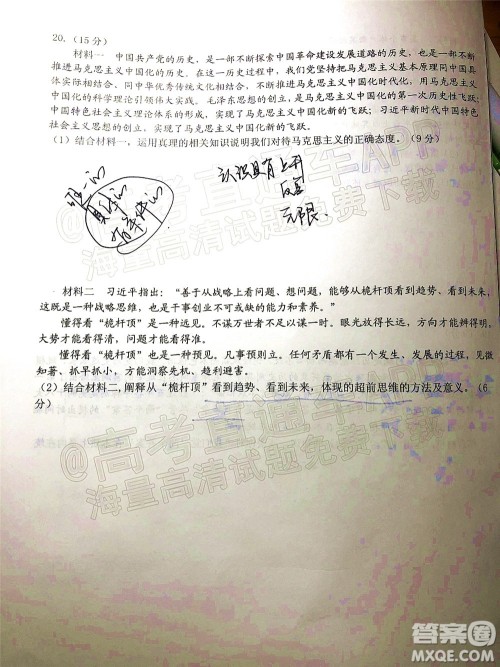 20.（15分）
材料一 中国共产党的历史，是一部不断探索中国革命建设发展道路的历史，也是一部不断
推进马克思主义中国化的历史。在这一历史过程中，我们党坚持把马克思主义基本原理同中国具
体实际相结合、同中华优秀传统文化相结合，不断推进马克思主义中国化时代化，用马克思主义
中国化的科学理论引领伟大实践。毛泽东思想的创立，是马克思主义中国化的第一次历史性飞跃；
中国特色社会主义理论体系的形成，实现了马克思主义中国化新的飞跃；习近平新时代中国特色
社会主义思想的创立，实现了马克思主义中国化新的飞跃。
（1）结合材料一，运用真理的相关知识说明我们对待马克思主义的正确态度。（9分）
认识具有上升
唯一的
反复
具体的
无限、
有条件的
@高考直通车APP
海量高清试题免费下载
材料二 习近平指出：“善于从战略上看问题、想问题，能够从桅杆顶看到趋势、看到未来，
这既是一种战略思维，也是干事创业不可或缺的能力和素养。”
懂得看“桅杆顶”是一种远见。不谋万世者不足以谋一时。眼光放得长远、看得辩明，大
势才能看得清，问题才能看得准。
懂得看“桅杆顶”也是一种预见。凡事预则立。任何矛盾都有一个发生、发展的过程，见微
知著、抓早抓小，方能把握主动、趋利避害。
（2）结合材料二，阐释从“桅杆顶”看到趋势、看到未来，体现的超前思维的方法及意义。（6
分）
@高考直通车APP
海量高清试题免费下载
答案圈
MXQE.COM